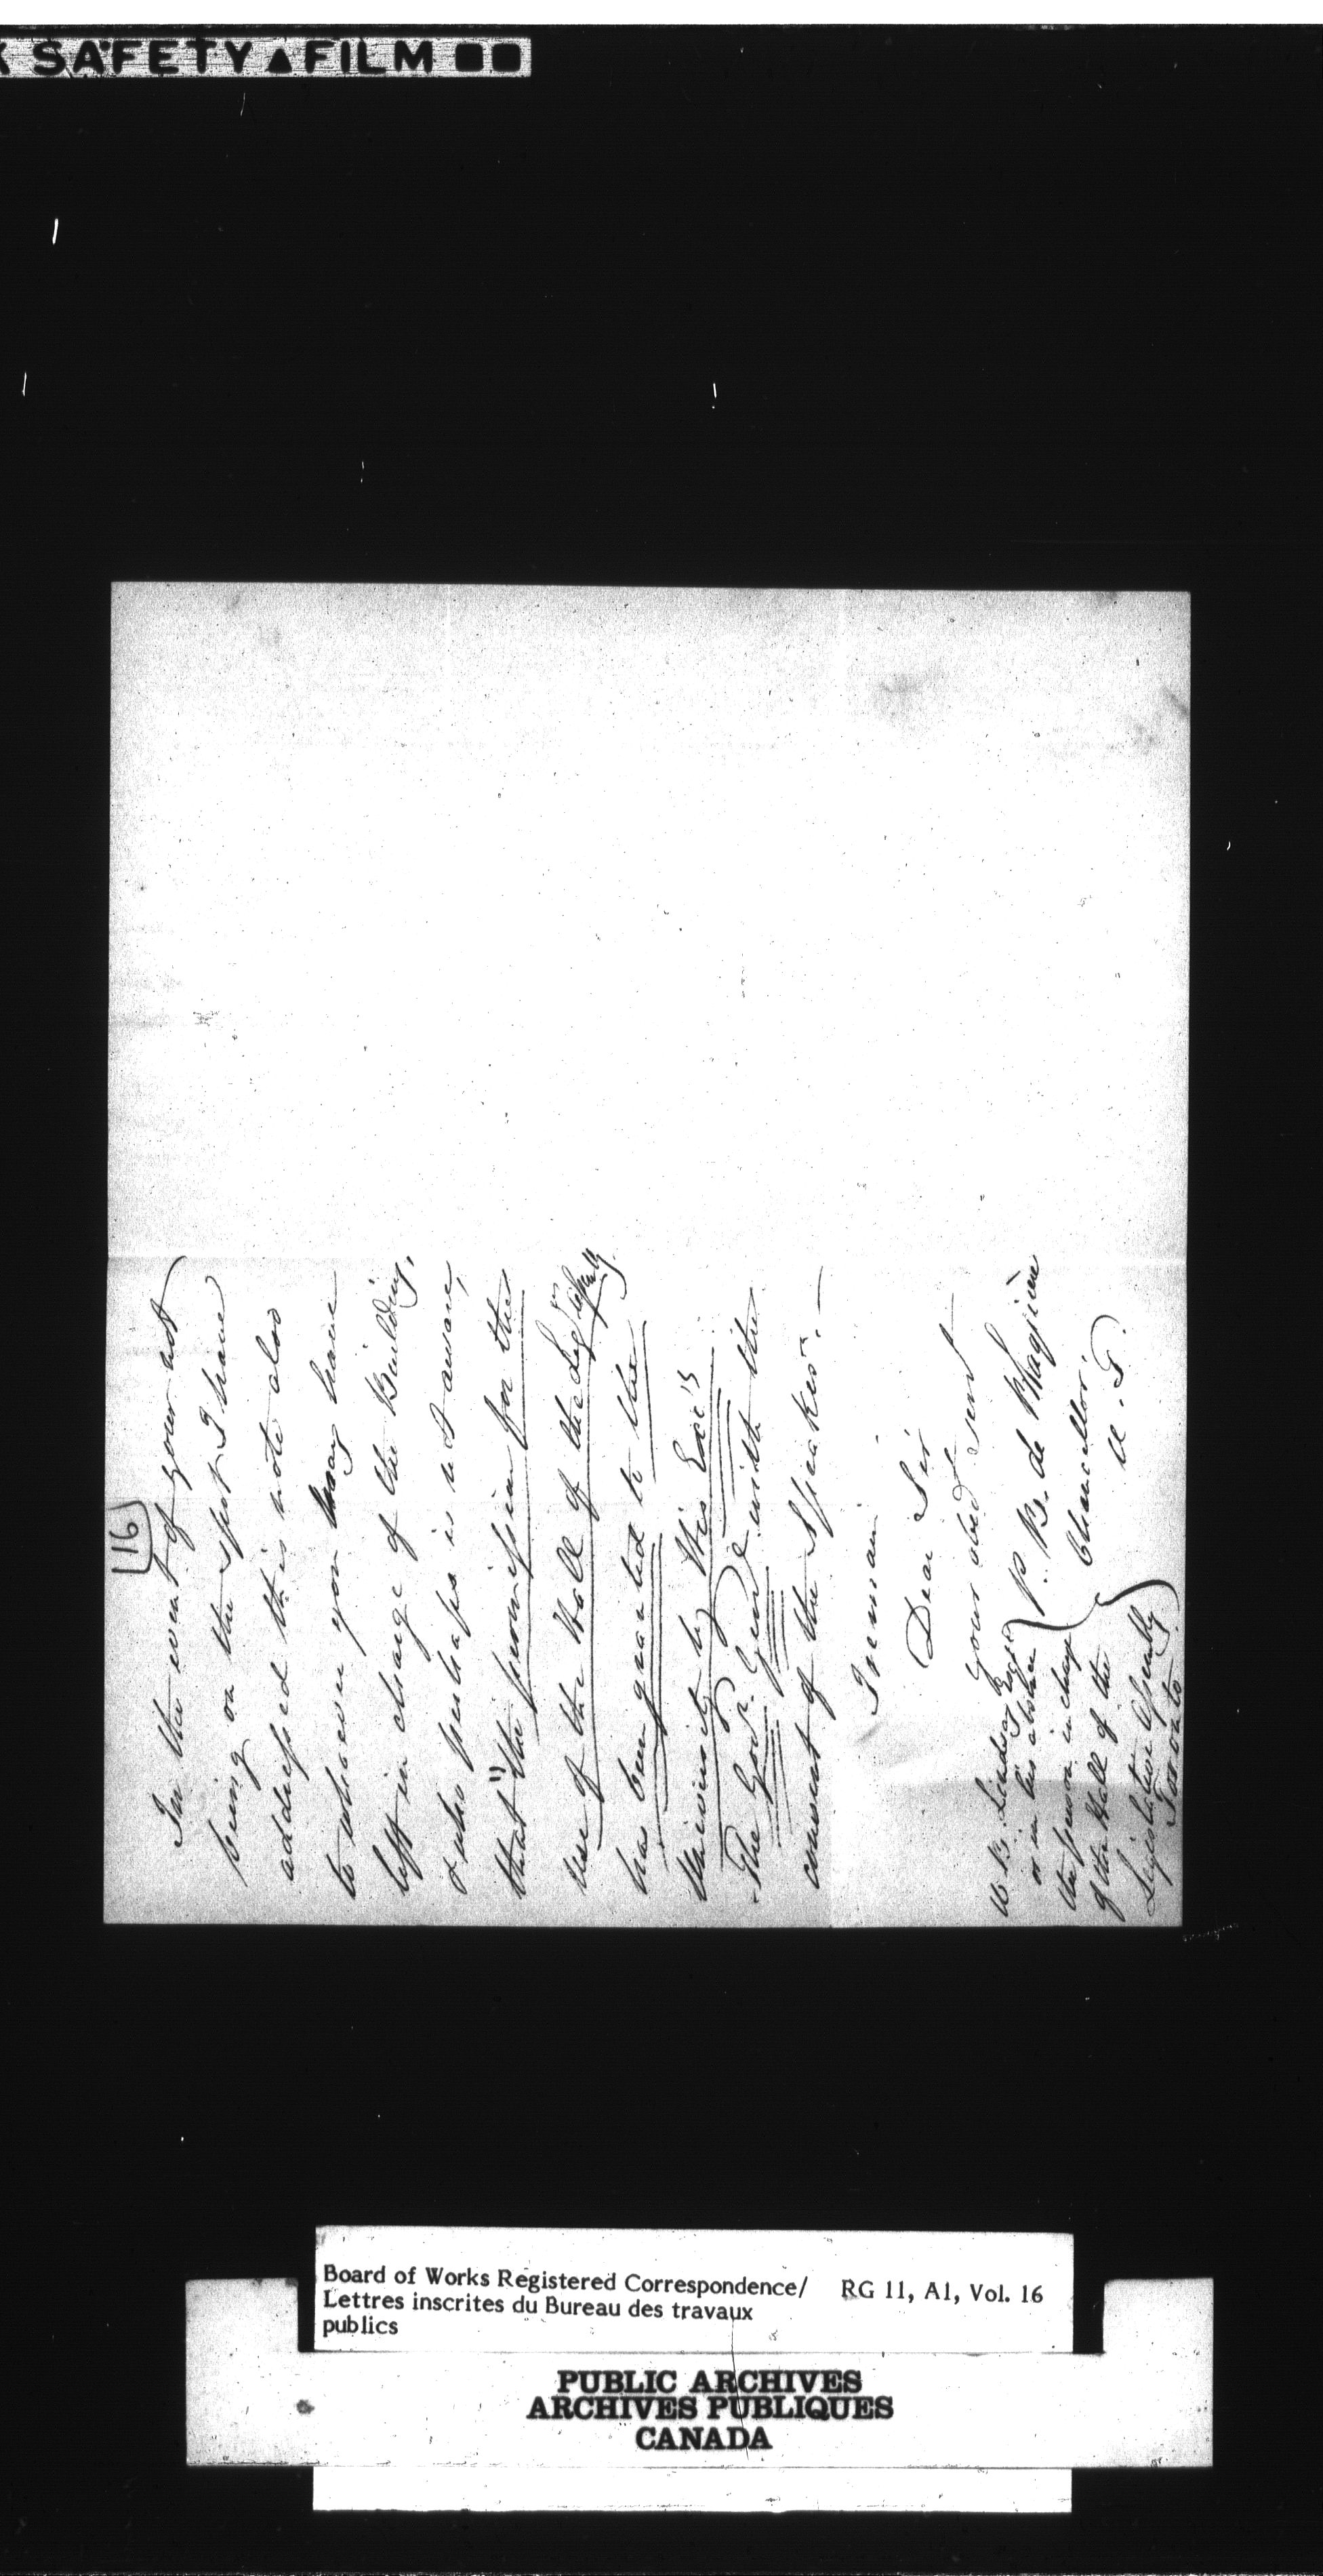 SAFETY▲FILM ■■
16
In the event of your not
being on the spot I have
addressed this note also
to whoever you may have
left in charge of the Building,
& who perhaps is not aware,
that "the permission for the
use of the Hall of the Leg.ve Assembly
has been granted to the
University by His Exc'y
The Gov.r Gen.l with the
consent of the Speaker". —
I remain
Dear Sir
your obed.t serv.t
P. B. de Blaquière
Chancellor
U. T.
W. B. Lindsay Esq.r
or in his absence
the person in charge
of the Hall of the
Legislative Assembly
Toronto.
Board of Works Registered Correspondence/ RG 11, A1, Vol. 16
Lettres inscrites du Bureau des travaux
publics
PUBLIC ARCHIVES
ARCHIVES PUBLIQUES
CANADA